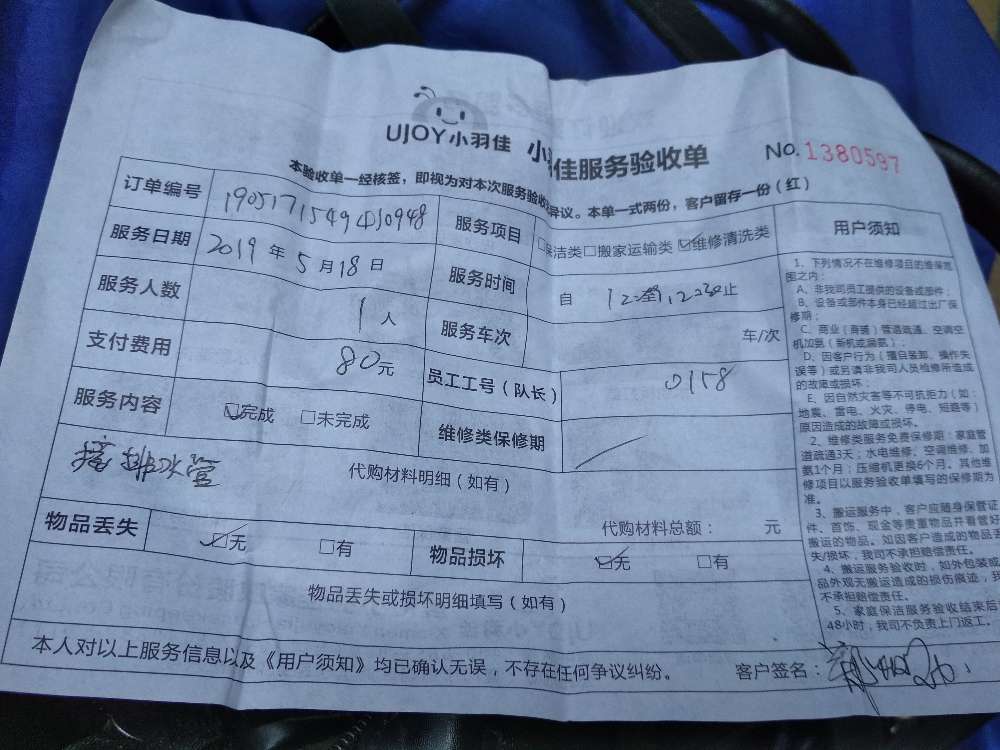 UJOY小羽佳 小羽佳服务验收单 No.1380597
本验收单一经核签，即视为对本次服务验收 异议。本单一式两份，客户留存一份（红）
订单编号 服务项目 □保洁类□搬家运输类☑维修清洗类
服务日期 2019 年 5 月 18 日 服务时间 自 止
服务人数 1 人 服务车次 车/次
支付费用 80元 员工工号（队长） 0158
服务内容 ☑完成 □未完成 维修类保修期
排水管 代购材料明细（如有）
代购材料总额： 元
物品丢失 ☑无 □有 物品损坏 ☑无 □有
物品丢失或损坏明细填写（如有）
本人对以上服务信息以及《用户须知》均已确认无误，不存在任何争议纠纷。 客户签名：
用户须知
1、下列情况不在维修项目的维保范
围之内：
A、非我司员工提供的设备或部件；
B、设备或部件本身已经超过出厂保
修期；
C、商业（商铺）管道疏通、空调空
机加氨（新机或漏氨）；
D、因客户行为（擅自装卸、操作失
误等）或另请非我司人员维修所造成
的故障或损坏；
E、因自然灾害等不可抗拒力（如：
地震、雷电、火灾、停电、短路等）
原因造成的故障或损坏。
2、维修类服务免费保修期：家庭管
道疏通3天；水电维修、空调维修、加
氨1个月；压缩机更换6个月。其他维
修项目以服务验收单填写的保修期为
准。
3、搬运服务中，客户应随身保管证
件、首饰、现金等贵重物品并看管好
搬运的物品。如因客户造成的物品丢
失/损坏，我司不承担赔偿责任。
4、搬运服务验收时，如外包装或
品外观无搬运造成的损伤痕迹，我
不承担赔偿责任。
5、家庭保洁服务验收结束后
48小时，我司不负责上门返工。